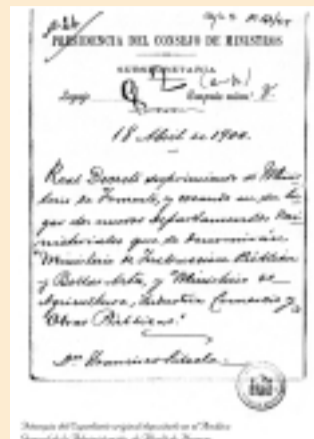 PRESIDENCIA DEL CONSEJO DE MINISTROS
SUBSECRETARIA
Legajo
18 Abril de 1900.
Real Decreto suprimiendo el Minis-
terio de Fomento, y creando en su lu-
gar dos nuevos departamentos mi-
nisteriales que se denominarán
"Ministerio de Instrucción Pública
y Bellas Artes, y Ministerio de
Agricultura, Industria Comercio y
Obras Públicas."
Dn. Francisco Silvela.
del Expediente original depositado en el Archivo